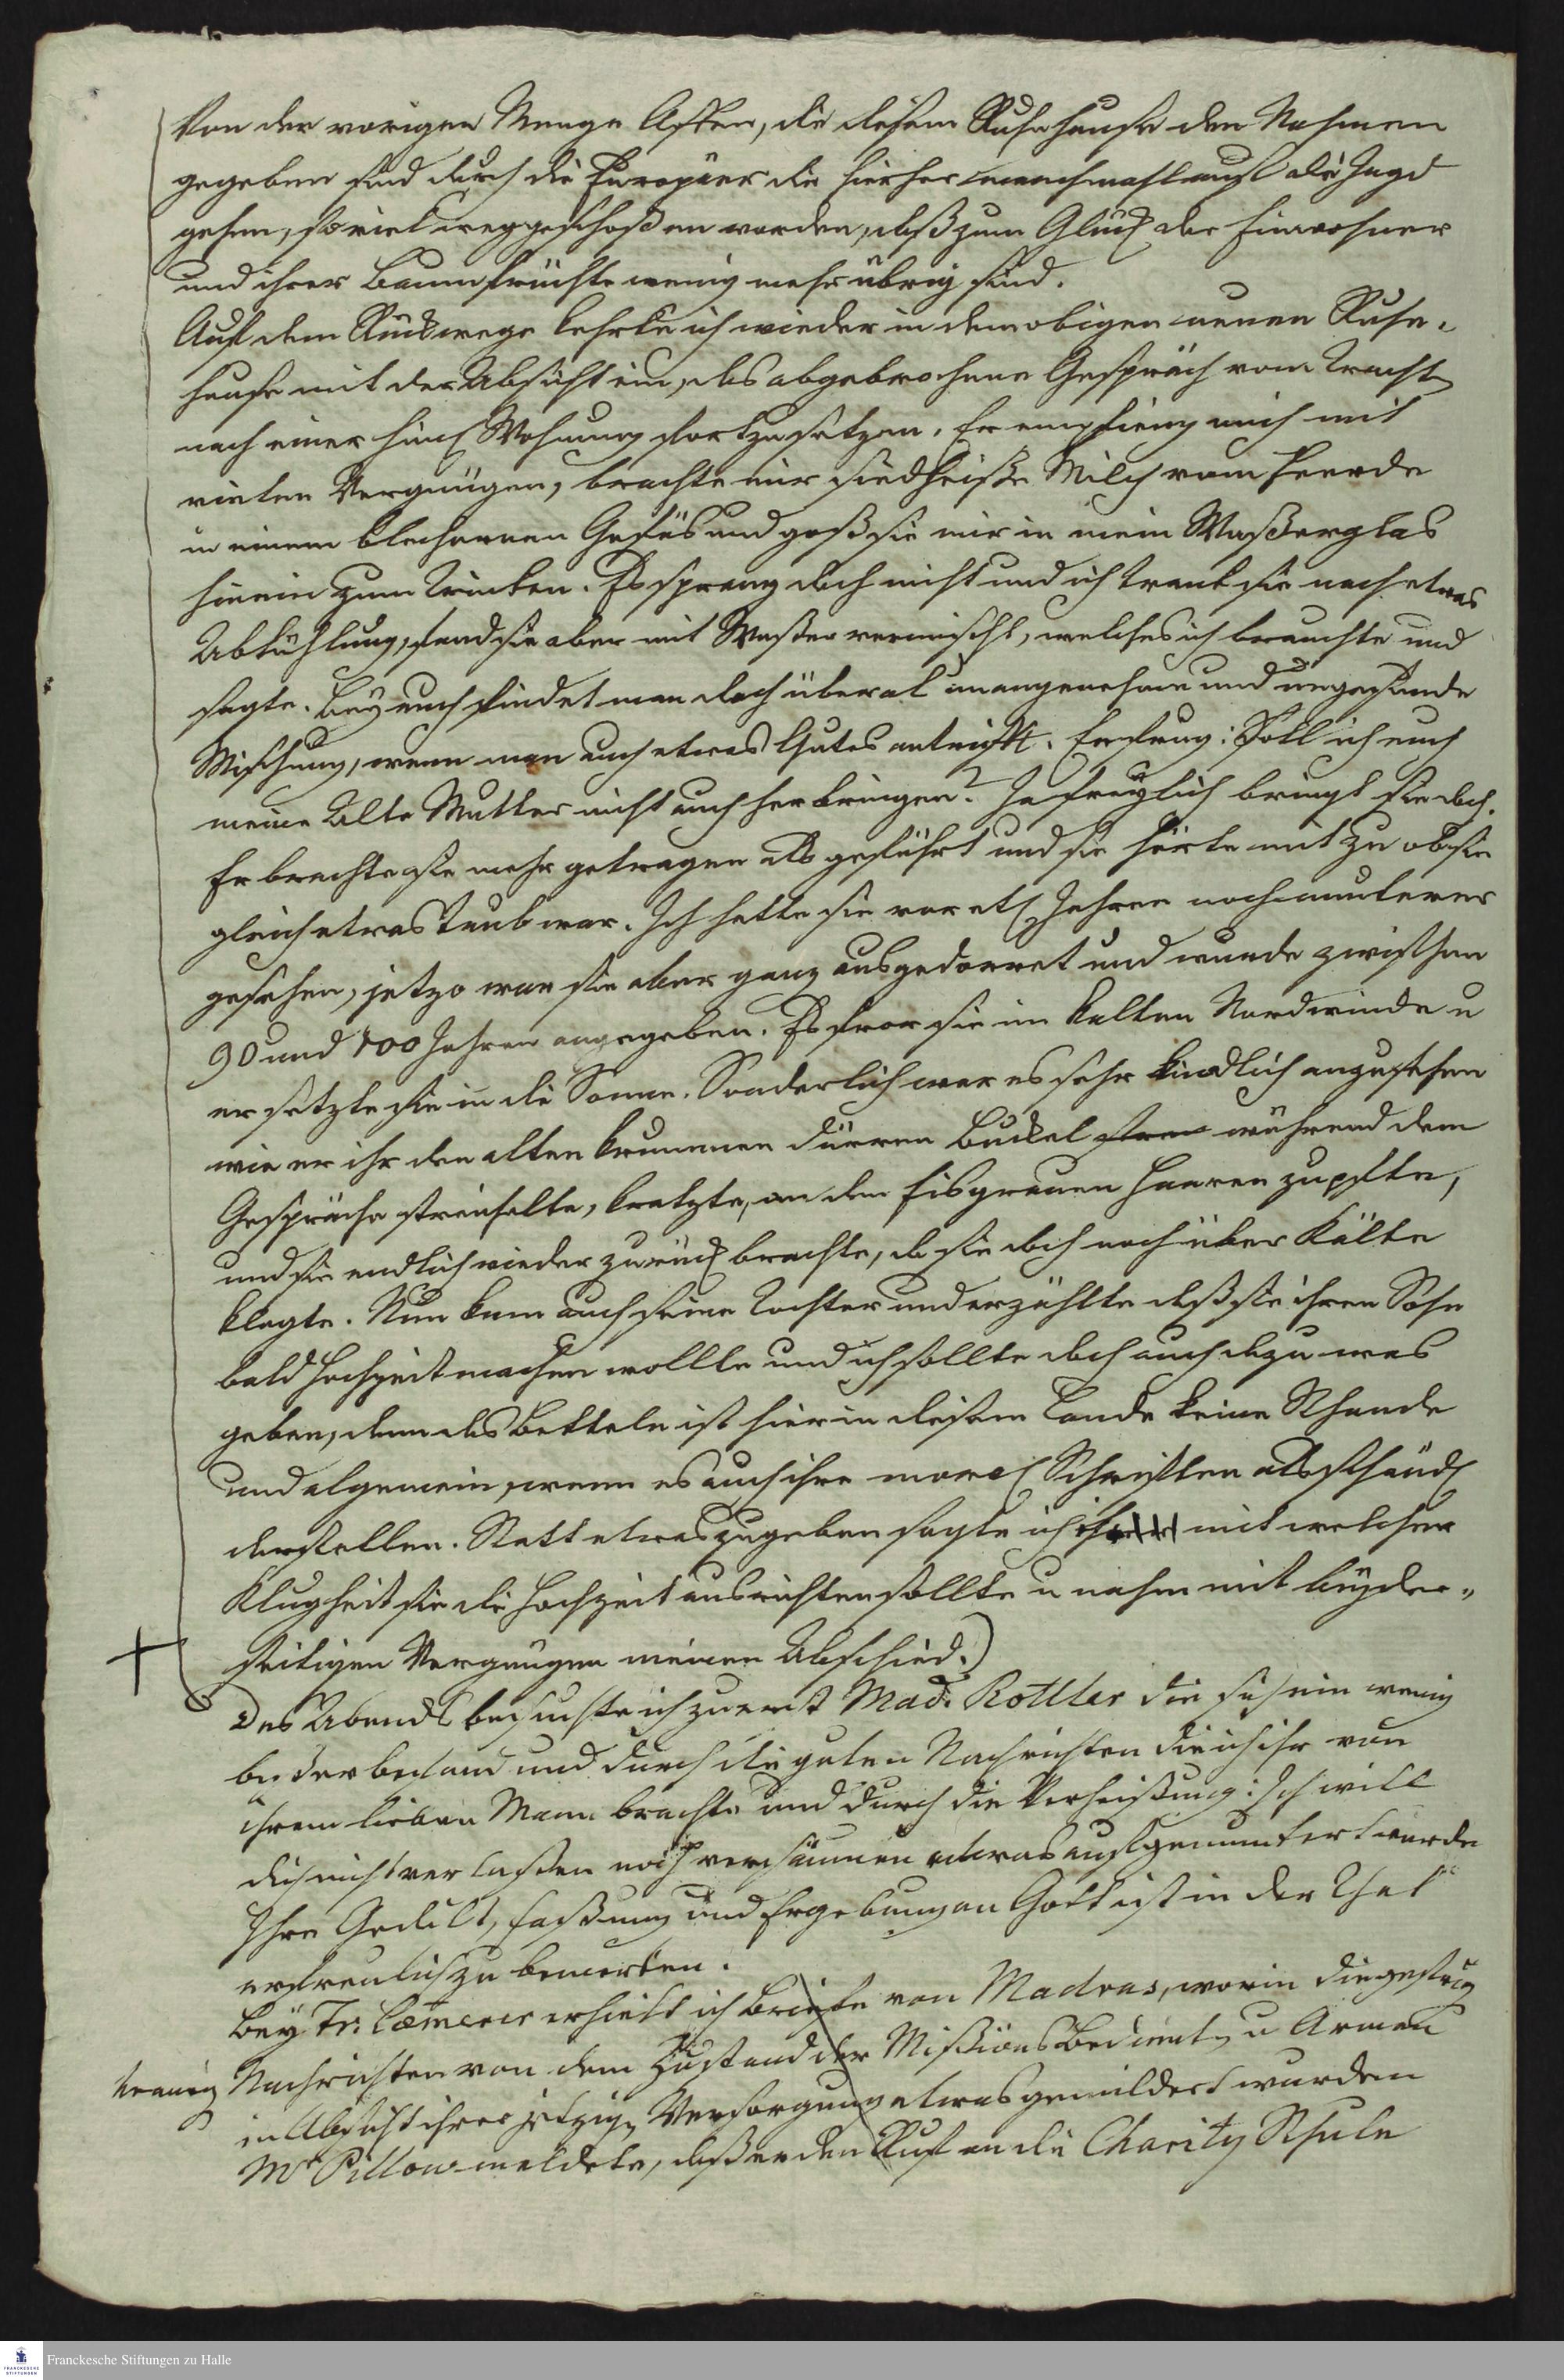 Von der vorigen Menge Affen, die diesem Ruhehause den Nahmen
gegeben sind durch die Europäer die hierher manchmahl auf die Jagd
gehen, so viel weggeschoßen worden, daß zum Glück der Einwohner
und ihrer Baumfrüchte wenig mehr übrig sind.
Auf dem Rückwege kehrte ich wieder in dem obigen neuen Ruhe-
hause mit der Absicht ein, das abgebrochene Gespräch vom Tracht
nach einer himl Wohnung fortzusetzen. Er empfieng mich mit
vielen Vergnügen, brachte mir siedheiße Milch vom Heerde
in einem blechernen Gefäs und goß sie mir in mein Waßerglas
hinein zum Trinken. Es sprang doch nicht und ich trank sie nach etwas
Abkühlung, fand sie aber mit Waßer vermischt, welches ich brauchte und
sagte. Bey euch findet man doch überal unangenehme und ungesunde
Mischung, wenn man auch etwas Gutes antrift. Er frug: Soll ich euch
meine Alte Mutter nicht auch herbringen? Ja freylich bringt sie doch.
Er brachte sie mehr getragen als geführt und sie hörte mit zu ob sie
gleich etwas Taub war. Ich hatte sie vor etl Jahren noch munterer
gesehen, jetzo war sie aber ganz ausgedorret und wurde zwischen
90 und 100 Jahren angegeben. Es fror sie im kalten Nordwinde u
er setzte sie in die Sonne. Sonderlich war es sehr kindlich anzusehen
wie er ihr den alten krummen dürren Buckel während dem
Gespräche streichelte, kratzte, an den Eisgrauen Haaren zupfte,
und sie endlich wieder zurück brachte, da sie doch noch über Kälte
klagte. Nun kam auch seine Tochter und erzählte daß sie ihren Sohn
bald Hochzeit machen wollte und ich sollte doch auch dazu was
geben, denn das Betteln ist hier in diesem Lande keine Schande
und algemein, wenn es auch ihre moral Schriften als schändl
darstellen. Statt etwas zu geben sagte ich ihr mit welcher
Klugheit sie die Hochzeit ausrichten sollte u nahm mit beyder-
seitigen Vergnügen meinen Abschied.)
Des Abends besuchte ich zuerst Mad. Rottler die sich ein wenig
beßer befand und durch die guten Nachrichten die ich ihr von
ihrem lieben Mann brachte und durch die Verheißung: Ich will
dich nicht verlaßen noch versäumen etwas aufgemuntert wurde
Ihre Gedult, Faßung und Ergebung an Gott ist in der That
erfreulich zu bemerken.
Bey Fr. Cæmerer erhielt ich Briefe von Madras, worin die gestrig
traurig Nachrichten von dem Zustand der Mißions Bedient u Armen
in Absicht ihrer jetzign Versorgung etwas gemildert wurden
Mr Pillow meldete, daß er den Ruf an die Charity Schule
Franckesche Stiftungen zu Halle